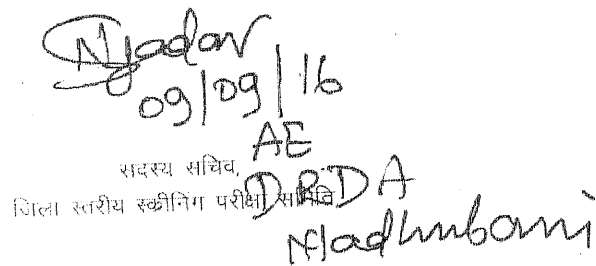 NJadav
09/09/16
AE
सदस्य सचिव,
DRDA
जिला स्तरीय स्कीनिंग परीक्षा समिति
Madhubani